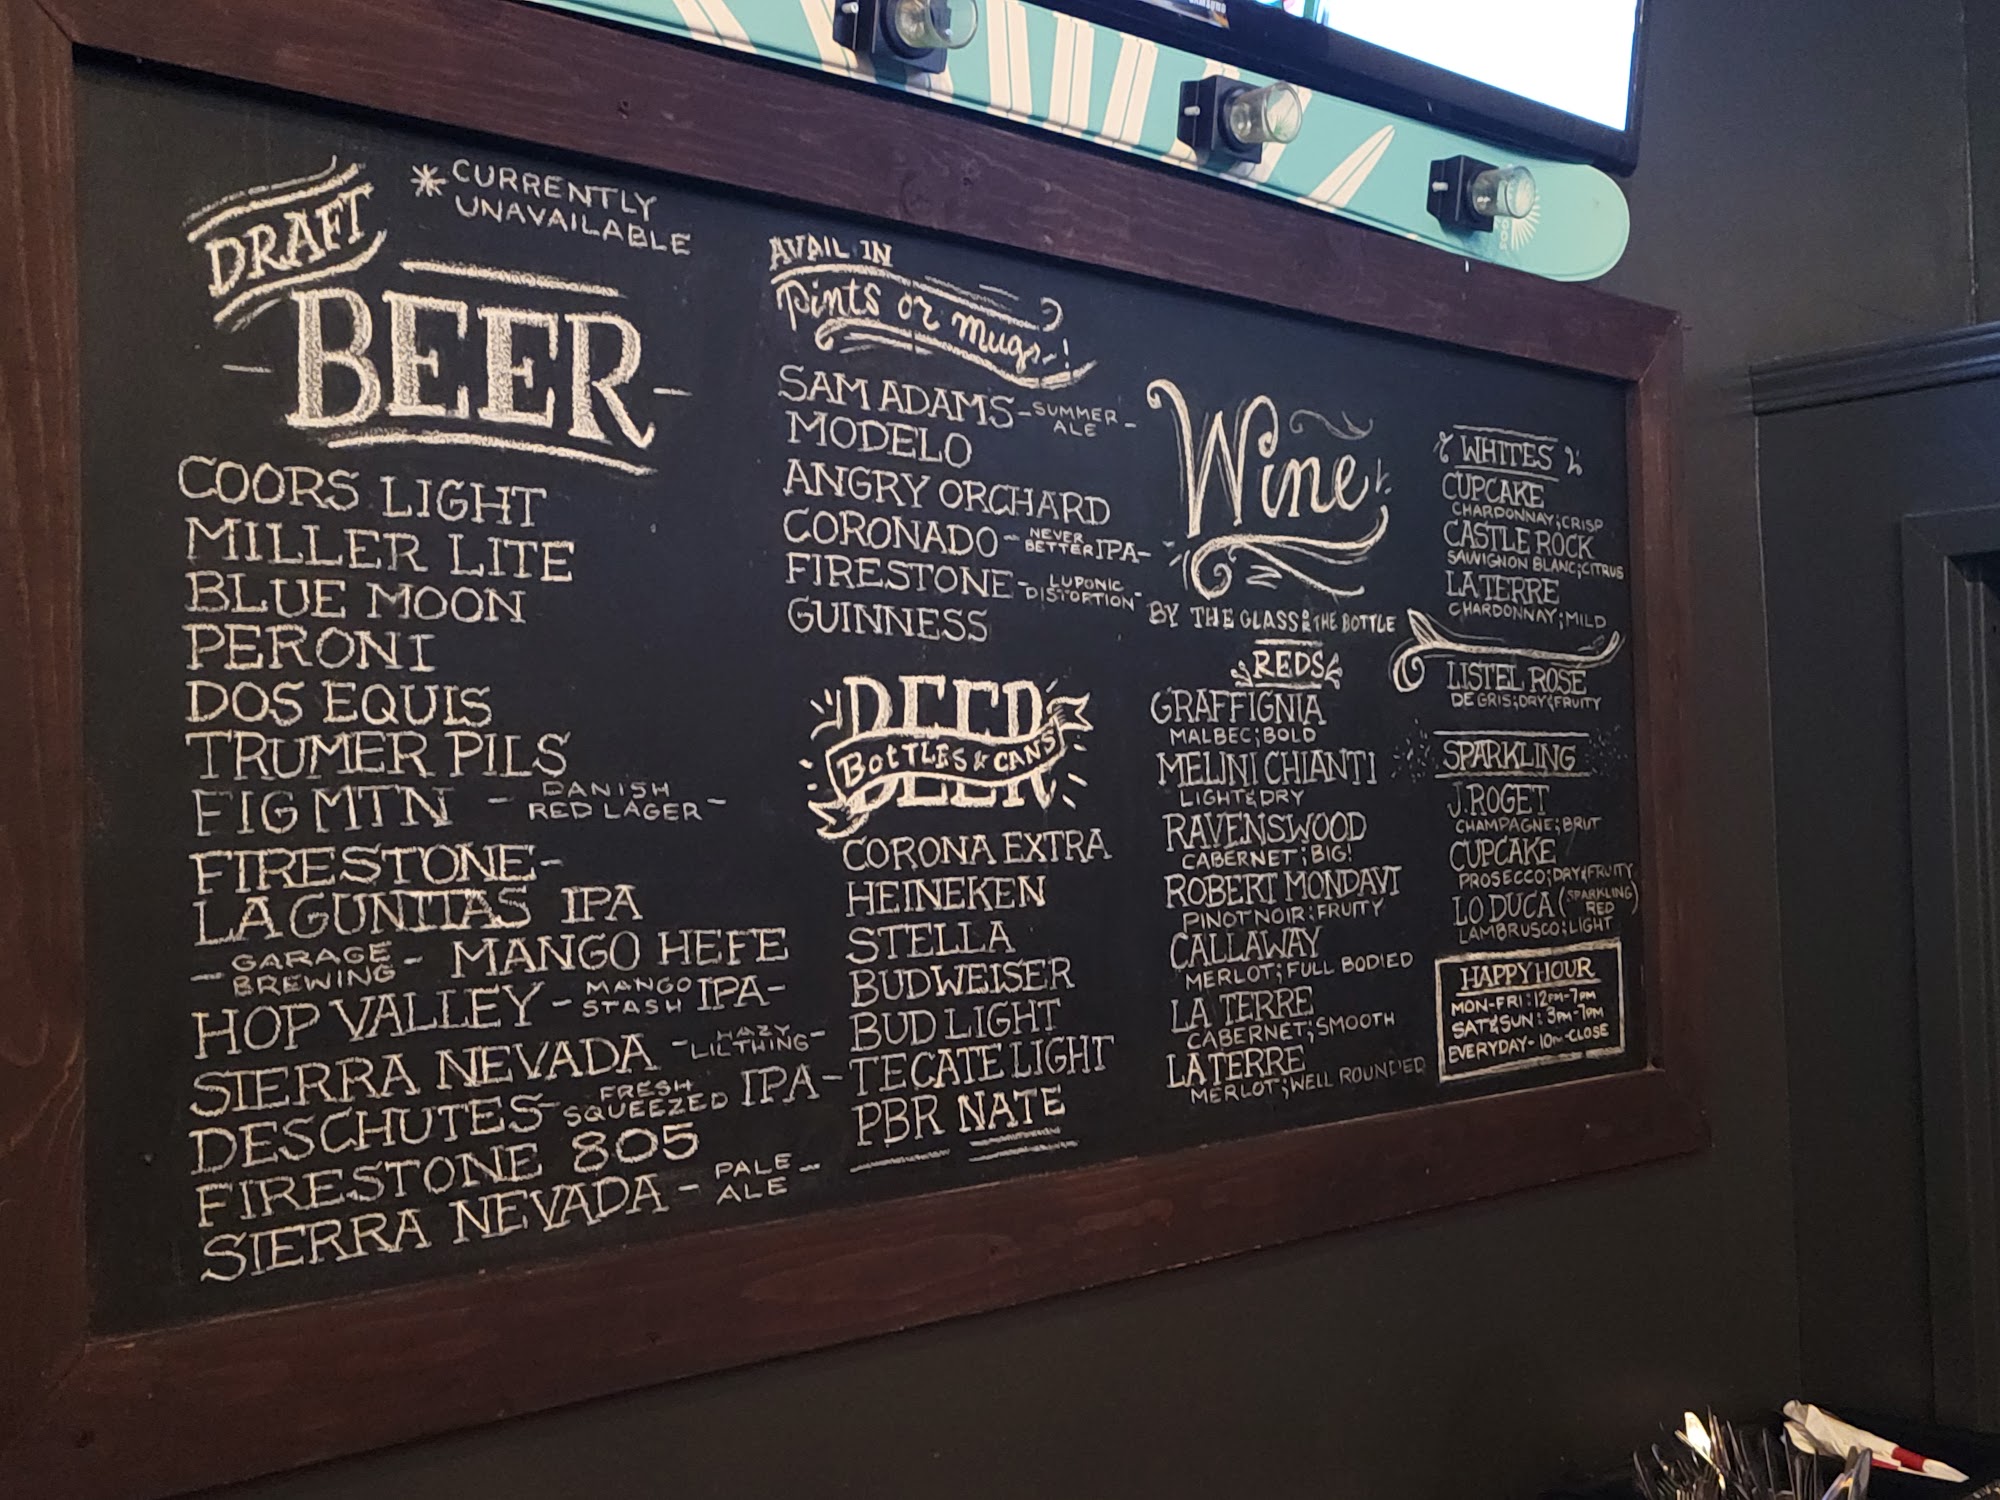 DRAFT
BEER
* CURRENTLY
UNAVAILABLE
COORS LIGHT
MILLER LITE
BLUE MOON
PERONI
DOS EQUIS
TRUMER PILS
FIG MTN - DANISH
RED LAGER -
FIRESTONE-
LAGUNITAS IPA
- GARAGE
BREWING - MANGO HEFE
HOP VALLEY - MANGO
STASH IPA-
SIERRA NEVADA - HAZY
LIL THING -
DESCHUTES - FRESH
SQUEEZED IPA-
FIRESTONE 805
SIERRA NEVADA - PALE
ALE -
AVAIL IN
Pints or mugs!
SAM ADAMS - SUMMER
ALE -
MODELO
ANGRY ORCHARD
CORONADO - NEVER
BETTER IPA-
FIRESTONE - LUPONIC
DISTORTION -
GUINNESS
BEER
BOTTLES & CANS
CORONA EXTRA
HEINEKEN
STELLA
BUDWEISER
BUD LIGHT
TECATE LIGHT
PBR NATE
Wine
BY THE GLASS OR THE BOTTLE
REDS
GRAFFIGNIA
MALBEC; BOLD
MELINI CHIANTI
LIGHT & DRY
RAVENSWOOD
CABERNET; BIG!
ROBERT MONDAVI
PINOT NOIR; FRUITY
CALLAWAY
MERLOT; FULL BODIED
LA TERRE
CABERNET; SMOOTH
LA TERRE
MERLOT; WELL ROUNDED
WHITES
CUPCAKE
CHARDONNAY; CRISP
CASTLE ROCK
SAUVIGNON BLANC; CITRUS
LA TERRE
CHARDONNAY; MILD
LISTEL ROSE
DE GRIS; DRY & FRUITY
SPARKLING
J. ROGET
CHAMPAGNE; BRUT
CUPCAKE
PROSECCO; DRY & FRUITY
LO DUCA (SPARKLING
RED)
LAMBRUSCO; LIGHT
HAPPY HOUR
MON-FRI: 12PM-7PM
SAT & SUN: 3PM-7PM
EVERYDAY- 10PM-CLOSE